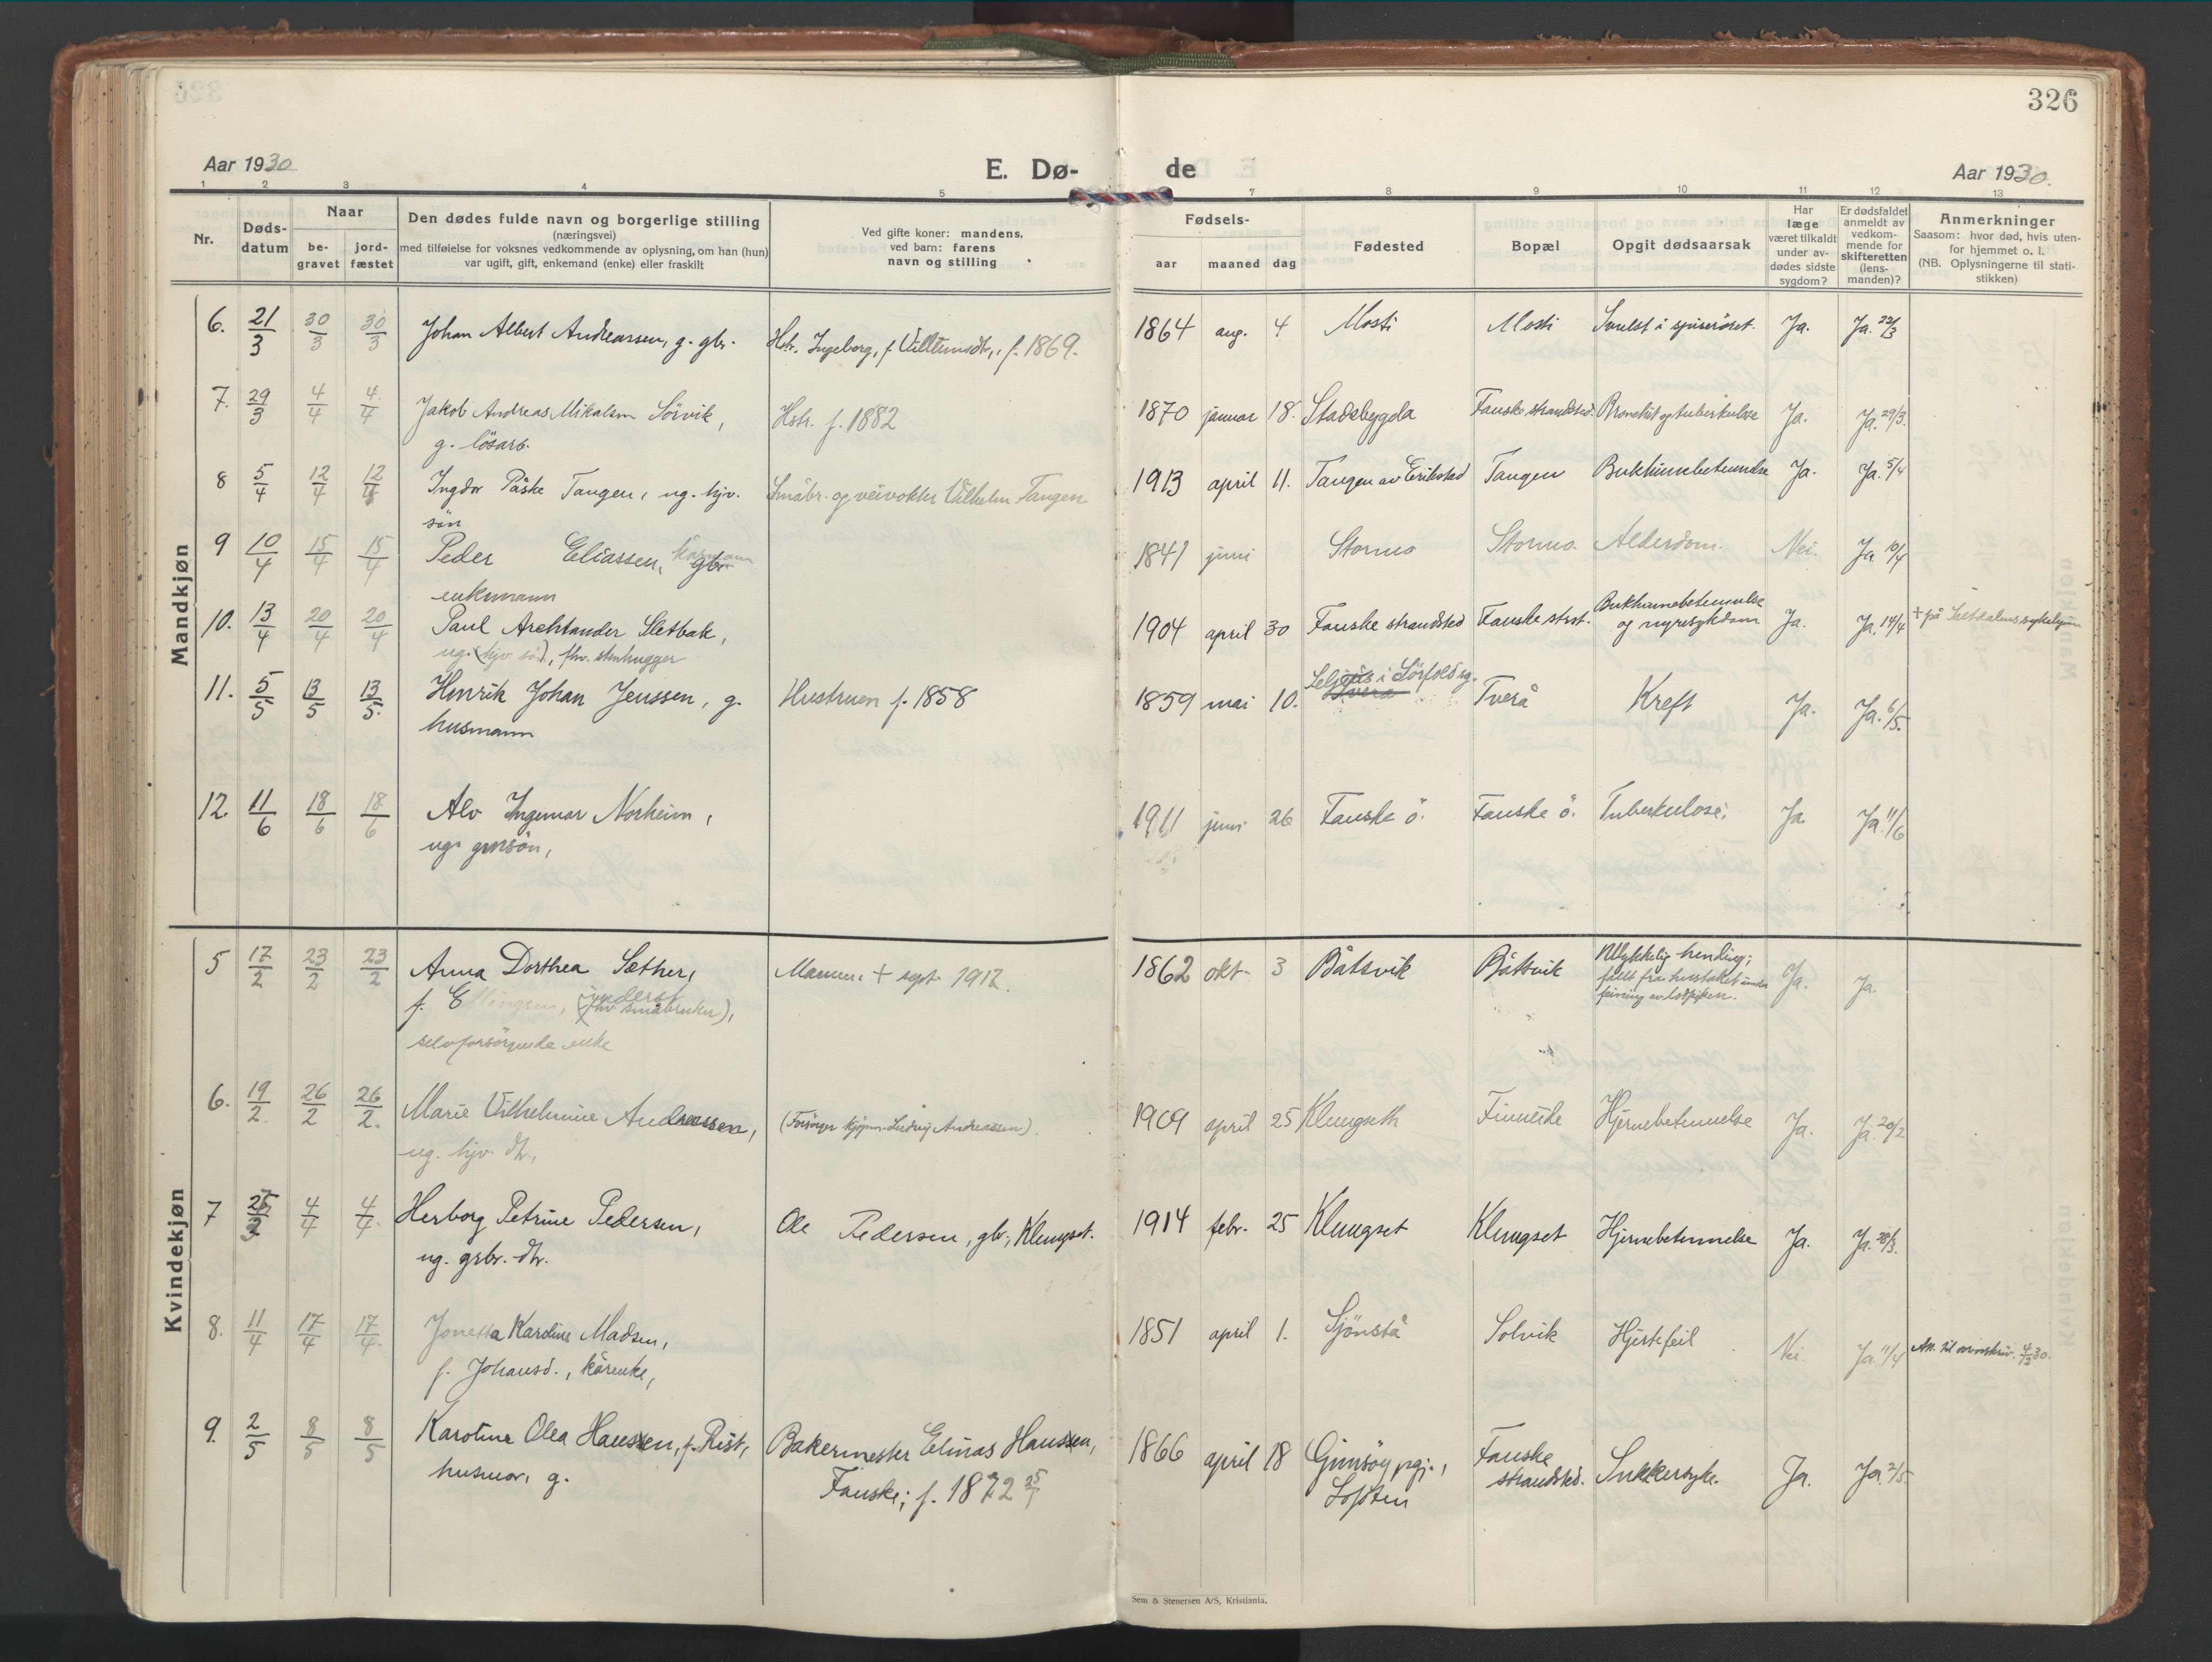 326
Aar 1930
E. Dø-
de
Aar 1930.
1 2 3 4 5 7 8 9 10 11 12 13
Nr.
Døds-
datum
Naar
be-
gravet
jord-
fæstet
Den dødes fulde navn og borgerlige stilling
(næringsvei)
med tilføielse for voksnes vedkommende av oplysning, om han (hun)
var ugift, gift, enkemand (enke) eller fraskilt
Ved gifte koner: mandens,
ved barn: farens
navn og stilling
Fødsels-
aar maaned dag
Fødested
Bopæl
Opgit dødsaarsak
Har
læge
været tilkaldt
under av-
dødes sidste
sygdom?
Er dødsfaldet
anmeldt av
vedkom-
mende for
skifteretten
(lens-
manden)?
Anmerkninger
Saasom: hvor død, hvis uten-
for hjemmet o. l.
(NB. Oplysningerne til stati-
stikken)
Mandkjøn
6. 21/3 30/3 30/3 Johan Albert Andreassen, g. gbr. Hstr. Ingeborg, f. Villumsdtr., f. 1869. 1864 aug. 4 Mosti Mosti Svulst i spiserøret. Ja. Ja. 22/3
7. 29/3 4/4 4/4 Jakob Andreas Mikalsen Sörvik, Hstr. f. 1882 1870 januar 18. Stadsbygda Fauske strandsted. Bronchit og tuberkulose Ja. Ja. 29/3.
g. lösarb.
8 5/4 12/4 12/4 Ingdor Påske Tangen, ug. hjv. Småbr. og veivokter Vilhelm Tangen 1913 april 11. Tangen av Erikstad Tangen Bukhinnebetennelse Ja. Ja. 5/4
sön
9 10/4 15/4 15/4 Peder Eliassen, kårmann gbr 1841 juni Stormo Stormo. Alderdom. Nei. Ja 10/4
enkemann
10. 13/4 20/4 20/4 Paul Archtander Sletbak, 1904 april 30 Fauske strandsted Fauske strst. Bukhinnebetennelse
og nyresykdom Ja. Ja. 14/4 + på Saltdalens sykehjem
ug. (hjv. sön), fhv. stenhugger
11. 5/5 13/5 13/5. Henrik Johan Jenssen, g. Hustruen f. 1858 1859 mai 10. i Sörfold sg. Tverå Kreft Ja. Ja. 6/5.
husmann
12. 11/6 18/6 18/6 Alv Ingemar Norheim, 1911 juni 26 Fauske ö. Fauske ö. Tuberkulose. Ja. Ja. 11/6
ug.
Kvindekjøn
5 17/2 23/2 23/2 Anna Dorthea Sæther, Mannen + sept. 1912. 1862 okt. 3 Båtsvik Båtsvik Ulykkelig hending;
falt fra hustaket under
feining av Ja. Ja.
f. Ellingsen, inderst (fhv småbruker),
selvforsörgende enke
6. 19/2 26/2 26/2. Marie Vilhelmine Andreassen, (Forsörger kjøpm. Ludvig Andreassen). 1909 april 25 Klungseth Finneide Hjernebetennelse Ja. Ja. 20/2
ug. hjv. dtr.,
7 25/3 4/4 4/4. Herborg Petrine Pedersen, Ole Pedersen, gbr., Klungset. 1914 febr. 25 Klungset Klungset Hjernebetennelse Ja. Ja. 28/3.
ug. grbr. dtr.
8. 11/4 17/4 17/4. Jonetta Karoline Madsen, 1851 april 1. Sjönstå Solvik Hjertefeil Nei. Ja. 11/4 4/12 30.
f. Johansd., kårenke,
9. 2/5 8/5 8/5 Karoline Olea Hanssen, f. Rist, Bakermester Elinas Hanssen, 1866 april 18 Gimsöy prgj., Fauske
strandsted. Sukkersyke. Ja. Ja. 2/5.
husmor, g. Fauske; f. 1872 25/7 Lofoten
Sem & Stenersen A/S, Kristiania.